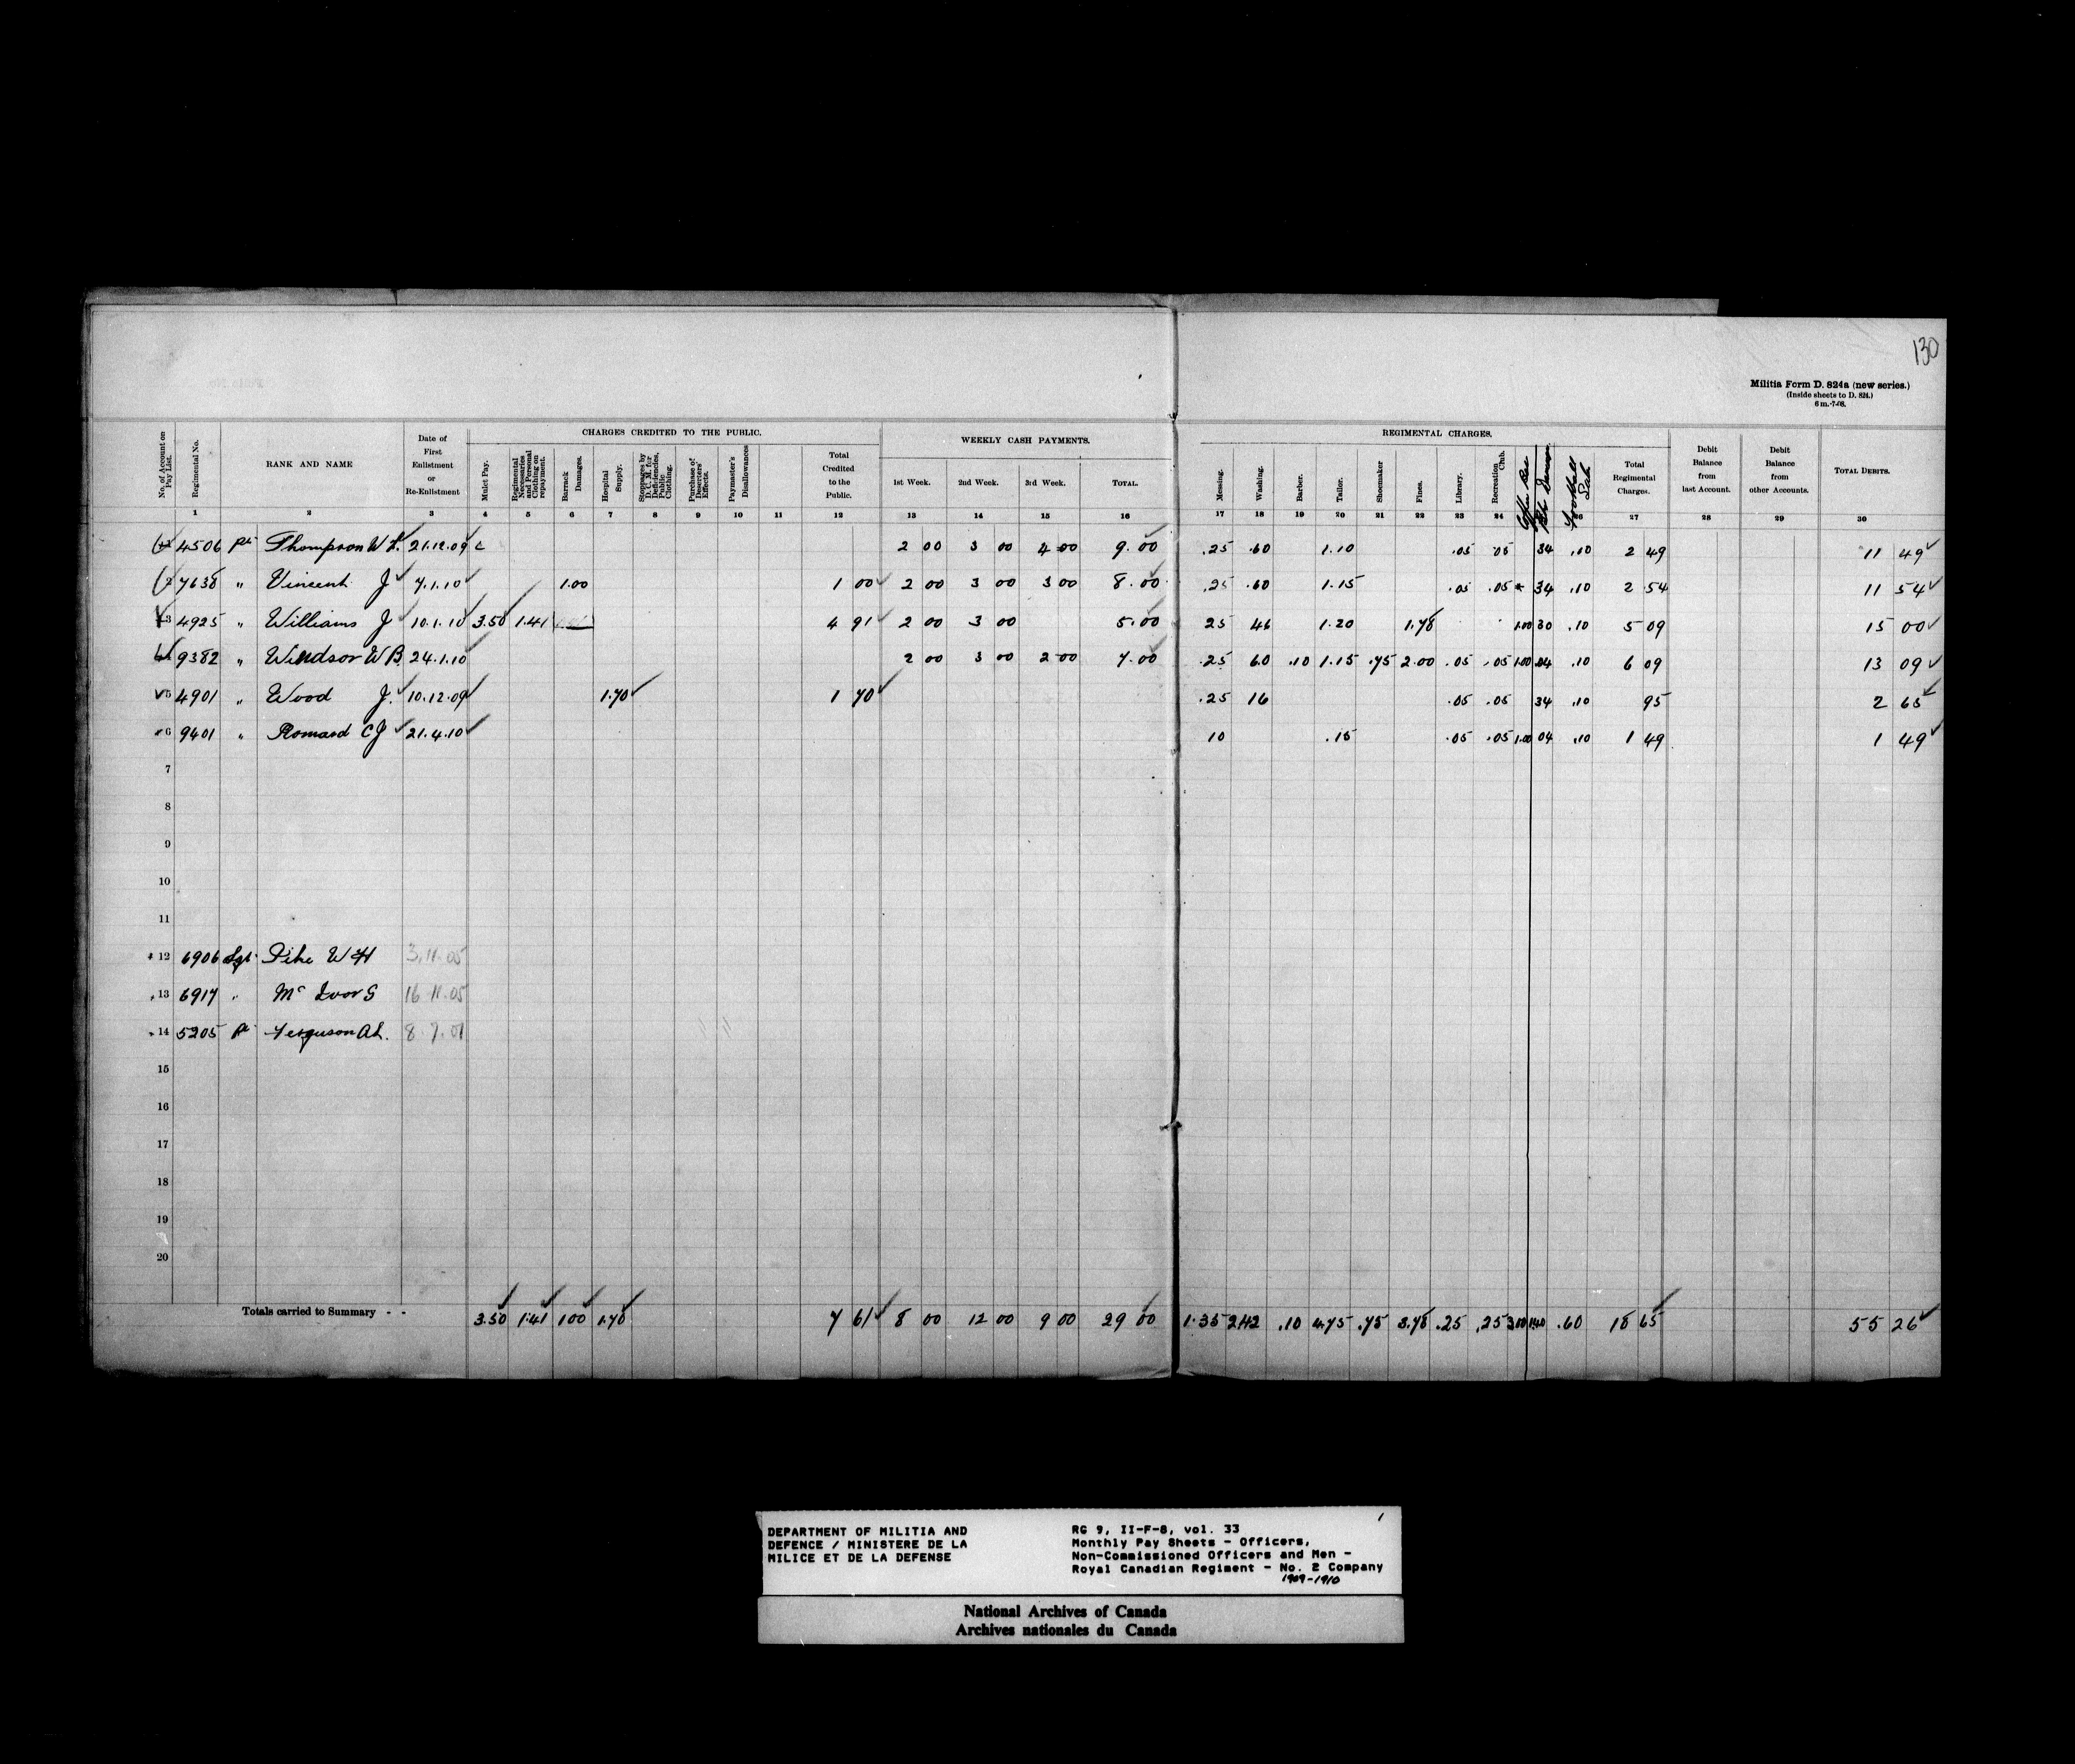 130
Militia Form D. 824a (new series.)
(Inside sheets to D. 824.)
6 m.-7-08.
CHARGES CREDITED TO THE PUBLIC. WEEKLY CASH PAYMENTS. REGIMENTAL CHARGES.
No. of Account on Pay List. Regimental No. RANK AND NAME Date of First Enlistment or Re-Enlistment Mulct Pay. Regimental Necessaries and Personal Clothing on repayment. Barrack Damages. Hospital Supply. Stoppages by D.C.M. for Deficiencies, Public Clothing. Purchase of Deserters' Effects. Paymaster's Disallowances Total Credited to the Public. 1st Week. 2nd Week. 3rd Week. TOTAL. Messing. Washing. Barber. Tailor. Shoemaker Fines. Library. Recreation Club. Football Total Regimental Charges. Debit Balance from last Account. Debit Balance from other Accounts. TOTAL DEBITS.
1 2 3 4 5 6 7 8 9 10 11 12 13 14 15 16 17 18 19 20 21 22 23 24 26 27 28 29 30
4506 Pte Thompson W L. 21.12.09 c 2 00 3 00 4 00 9.00 .25 .60 1.10 .05 .05 34 .10 2 49 11 49
7638 " Vincent J 7.1.10 1.00 1 00 2 00 3 00 3 00 8.00 .25 .60 1.15 .05 .05 34 .10 2 54 11 54
3 4925 " Williams J 10.1.10 3.50 1.41 4 91 2 00 3 00 5.00 25 46 1.20 1.78 1.00 30 .10 5 09 15 00
9382 " Windsor W B. 24.1.10 2 00 3 00 2 00 7.00 .25 60 .10 1.15 .75 2.00 .05 .05 1.00 .04 .10 6 09 13 09
5 4901 " Wood J. 10.12.09 1.70 1 70 .25 16 .05 .05 34 .10 95 2 65
6 9401 " Romard C J 21.4.10 10 .15 .05 .05 1.00 04 .10 1 49 1 49
7
8
9
10
11
12 6906 Sgt. Pike W H 3.11.05
13 6917 " Mc Ivor G 16.11.05
14 5205 Pte Ferguson A L. 8.7.01
15
16
17
18
19
20
Totals carried to Summary - - 3.50 1.41 1 00 1.70 7 61 8 00 12 00 9 00 29 00 1.35 2.42 .10 4.75 .75 3.78 .25 .25 3.00 1.40 .60 18 65 55 26
DEPARTMENT OF MILITIA AND
DEFENCE / MINISTERE DE LA
MILICE ET DE LA DEFENSE
RG 9, II-F-8, vol. 33
Monthly Pay Sheets - Officers,
Non-Commissioned Officers and Men -
Royal Canadian Regiment - No. 2 Company
1909-1910
National Archives of Canada
Archives nationales du Canada